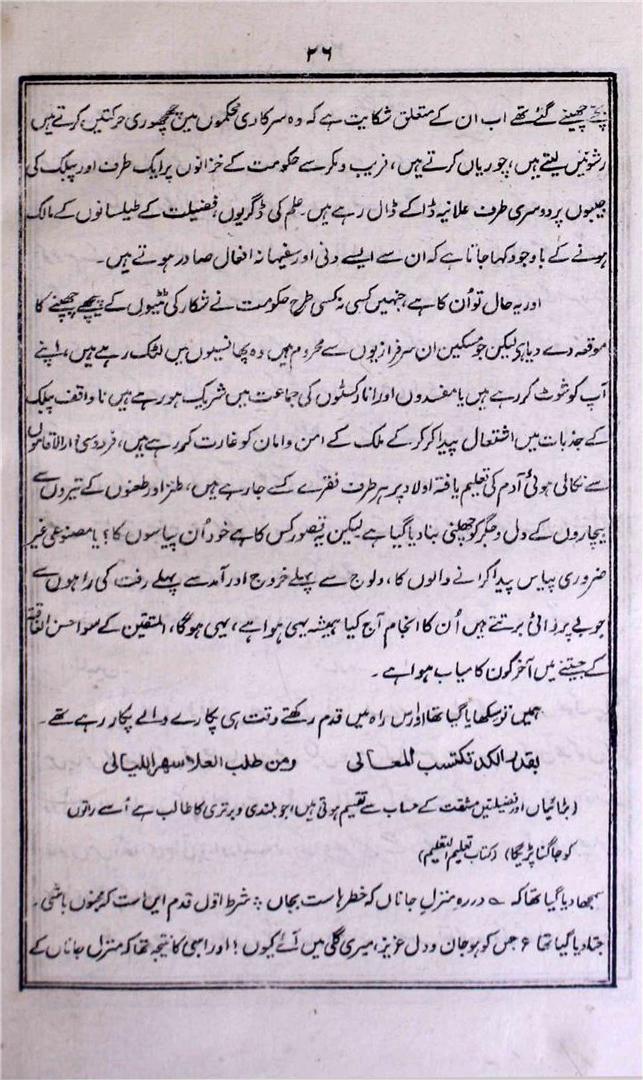 ۲۶
پیچھے چھپنے گئے تھے اب ان کے متعلق شکایت ہے کہ وہ سرکاری محکموں میں چھچھوری حرکتیں کرتے ہیں
رشوتیں لیتے ہیں، چوریاں کرتے ہیں، فریب و مکر سے حکومت کے خزانوں پر ایک طرف اور پبلک کی
جیبوں پر دوسری طرف علانیہ ڈاکے ڈال رہے ہیں۔ علم کی ڈگریوں، فضیلت کے طیلسانوں کے مالک
ہونے کے باوجود کہا جاتا ہے کہ ان سے ایسے دنی اور سفیہانہ افعال صادر ہوتے ہیں۔
اور یہ حال تو اُن کا ہے، جنہیں کسی نہ کسی طرح حکومت نے شکار کی ٹٹیوں کے پیچھے چھپنے کا
موقعہ دے دیا ہی لیکن جو مسکین ان سرفرازیوں سے محروم ہیں وہ پھانسیوں میں لٹک رہے ہیں، اپنے
آپ کو شوٹ کر رہے ہیں یا مفسدوں اور انارکسٹوں کی جماعت میں شریک ہو رہے ہیں ناواقف پبلک
کے جذبات میں اشتعال پیدا کر کر کے ملک کے امن و امان کو غارت کر رہے ہیں، فردوسیٔ دار الاقاموں
سے نکالی ہوئی آدم کی تعلیم یافتہ اولاد پر ہر طرف فقرے کسے جا رہے ہیں، طنز اور طعنوں کے تیروں سے
بیچاروں کے دل و جگر کو چھلنی بنا دیا گیا ہے لیکن یہ قصور کس کا ہے خود اُن پیاسوں کا؟ یا مصنوعی غیر
ضروری پیاس پیدا کرانے والوں کا، ولوج سے پہلے خروج اور آمد سے پہلے رفت کی راہوں سے
جو بے پروائی برتتے ہیں اُن کا انجام آج کیا ہمیشہ یہی ہوا ہے، یہی ہوگا، المتقین کے سوا حسن العاقبۃ
کے جیتنے میں آخر کون کامیاب ہوا ہے۔
ہمیں تو سکھایا گیا تھا اور اس راہ میں قدم رکھتے وقت ہی پکارے والے پکار رہے تھے۔
بقدر الكد تكتسب المعالی ومن طلب العلا سهر اللیالی
(بڑائیاں اور فضیلتیں مشقت کے حساب سے تقسیم ہوتی ہیں، جو بلندی و برتری کا طالب ہے اُسے راتوں
کو جاگنا پڑیگا) (کتاب تعلیم المتعلیم)
سمجھا دیا گیا تھا کہ ؎ در رہ منزلِ جاناں کہ خطرہاست بجاں ؛ شرط اوّل قدم ایں است کہ مجنوں باشی۔
جتا دیا گیا تھا ع جس کو ہو جان و دل عزیز، میری گلی میں آئے کیوں! اور اسی کا نتیجہ تھا کہ منزل جاناں کے